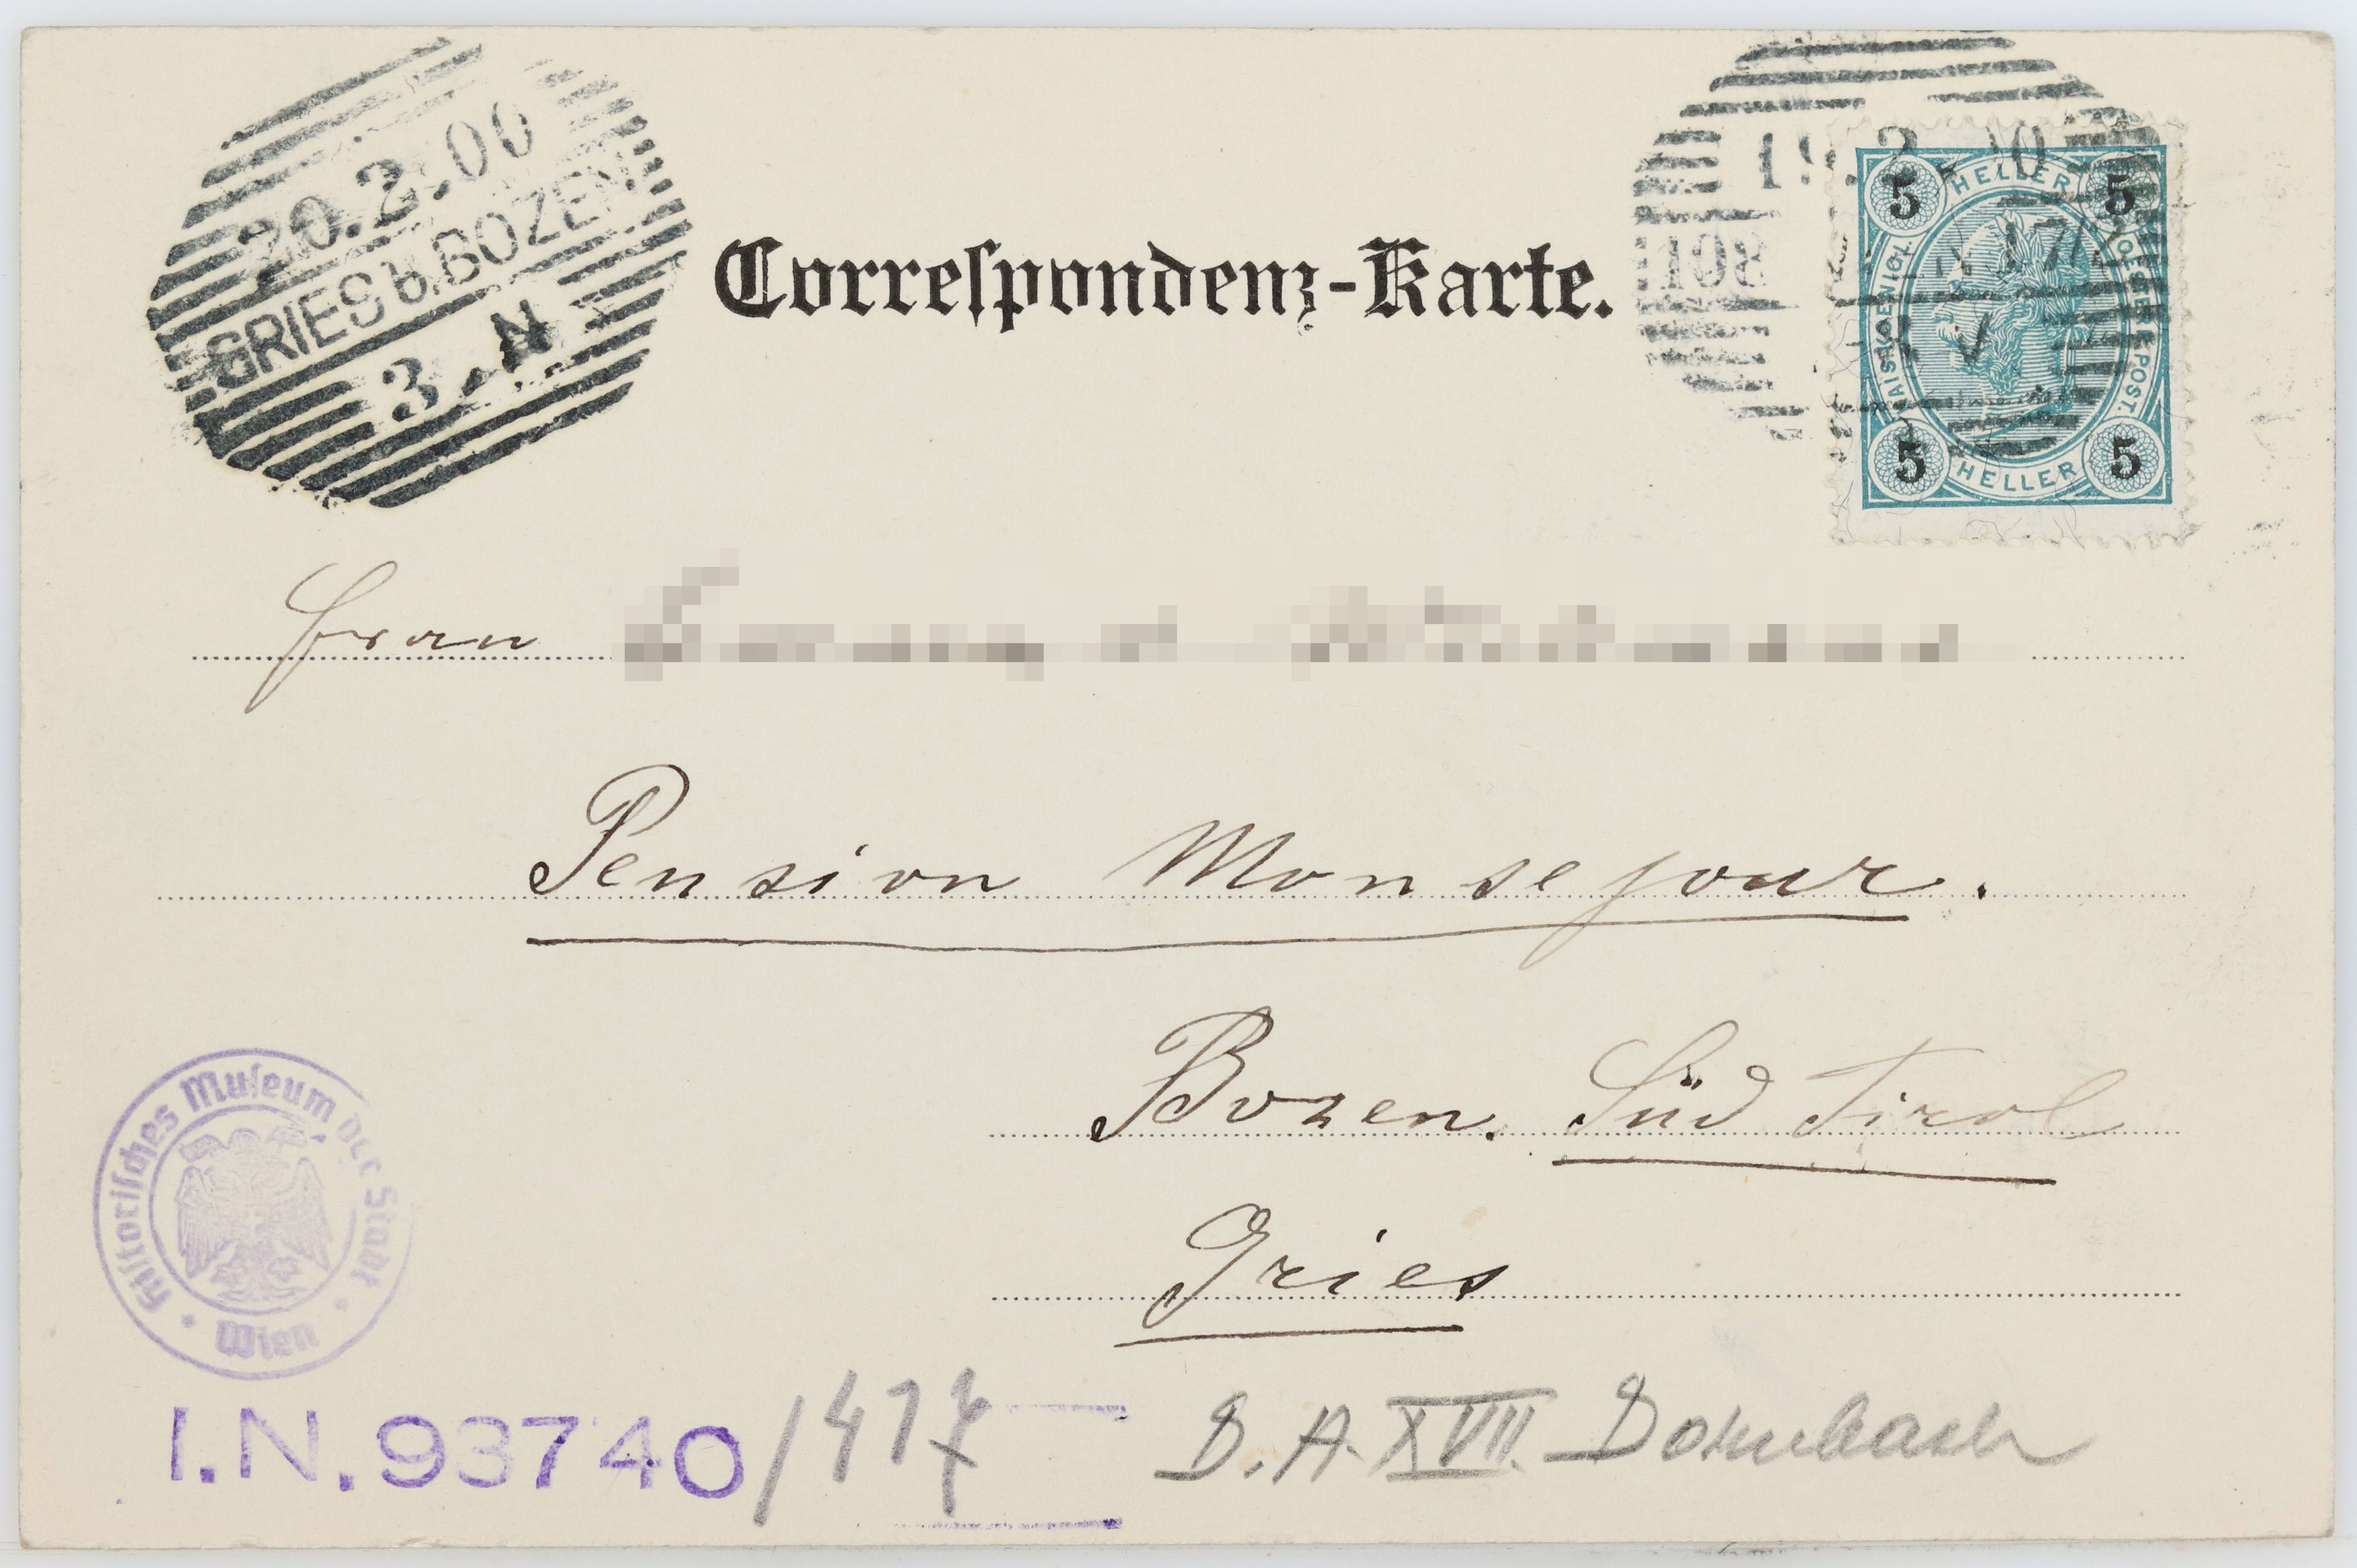 20.2.00
GRIES b. BOZEN
3.N
Correspondenz-Karte.
5 HELLER 5
KAIS. KOENIGL.
POST.
5 HELLER 5
Frau
Pension Monsejour.
Bozen. Süd Tirol
Gries
Historisches Museum der Stadt
Wien
I.N. 93740/417
B. A. XVII. Dornbach